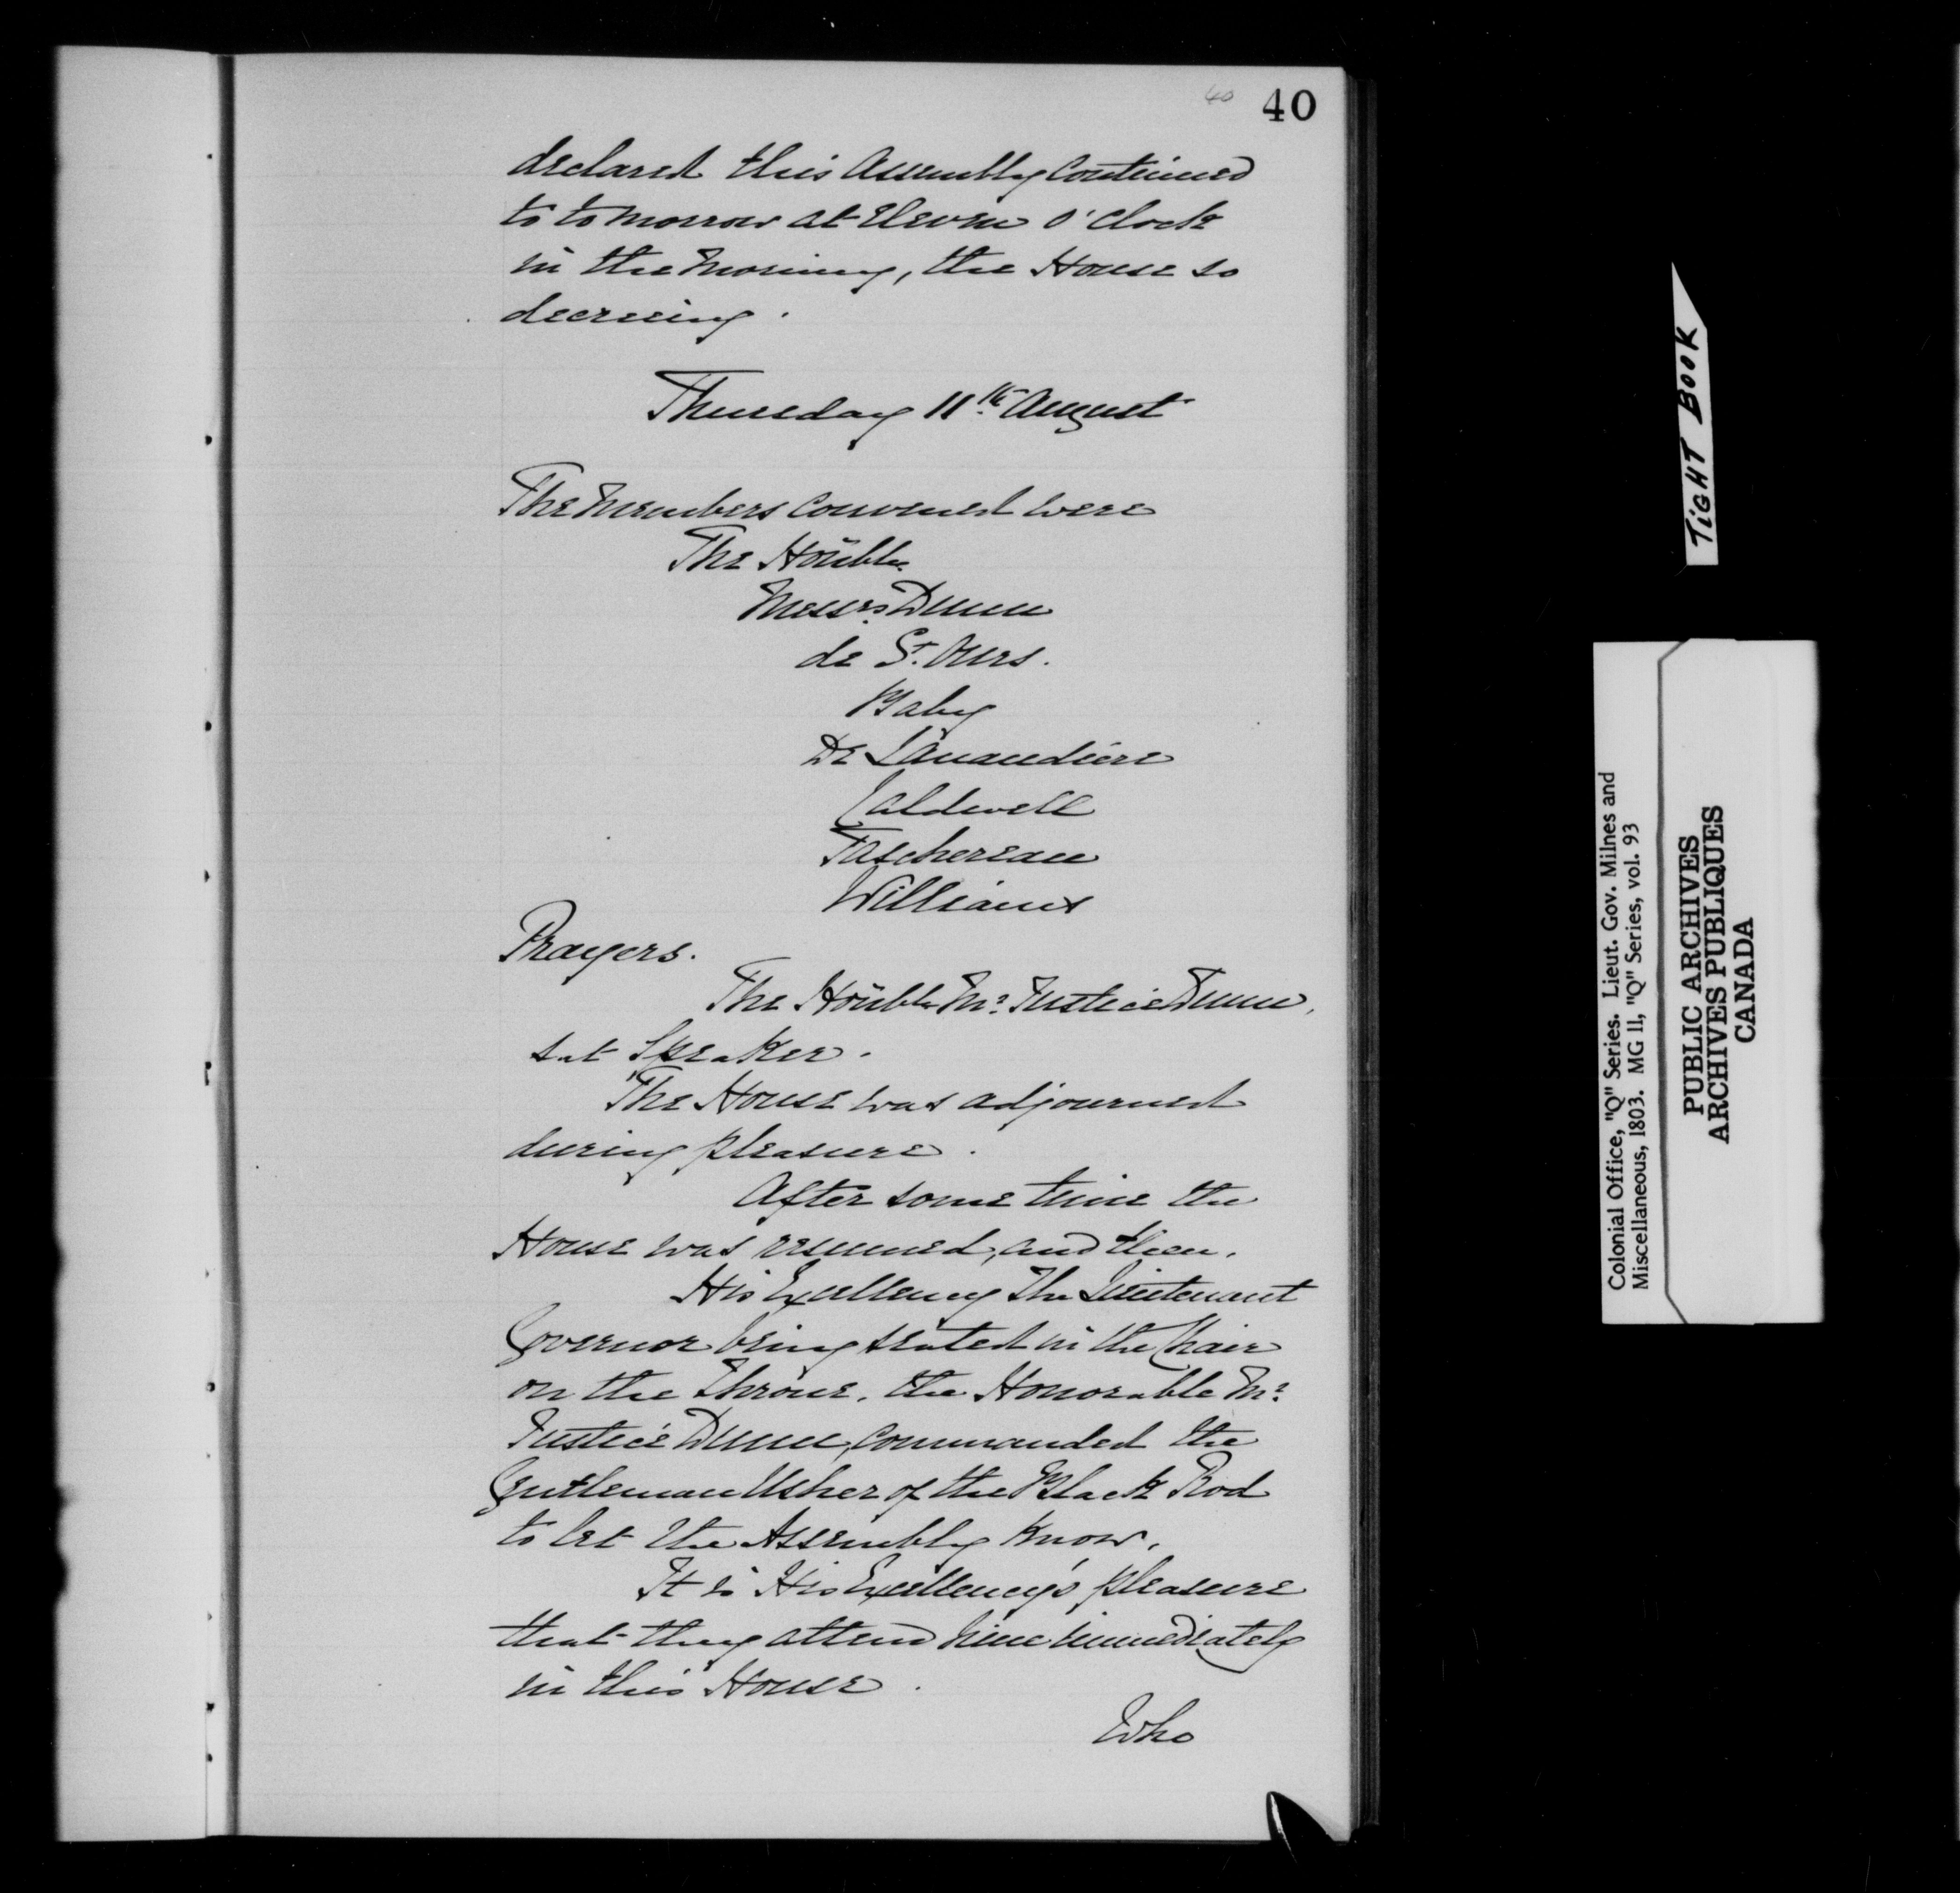 40 40
declared this Assembly Continued
to tomorrow at Eleven O'Clock
in the Morning, the House so
decreeing.
Thursday 11th August
The Members convened were
The Honble
Messrs Dunn
de St. Ours.
Baby
De Lanaudiere
Caldwell
Taschereau
Williams
Prayers.
The Honble Mr Justice Dunn,
sat Speaker.
The House was adjourned
during pleasure.
After some time the
House was resumed, and then,
His Excellency The Lieutenant
Governor being seated in the Chair
on the Throne, the Honorable Mr
Justice Dunn, commanded the
Gentleman Usher of the Black Rod
to let the Assembly know,
It is His Excellency's pleasure
that they attend him immediately
in this House.
Who
TIGHT BOOK
Colonial Office, "Q" Series. Lieut. Gov. Milnes and
Miscellaneous, 1803. MG 11, "Q" Series, vol. 93
PUBLIC ARCHIVES
ARCHIVES PUBLIQUES
CANADA